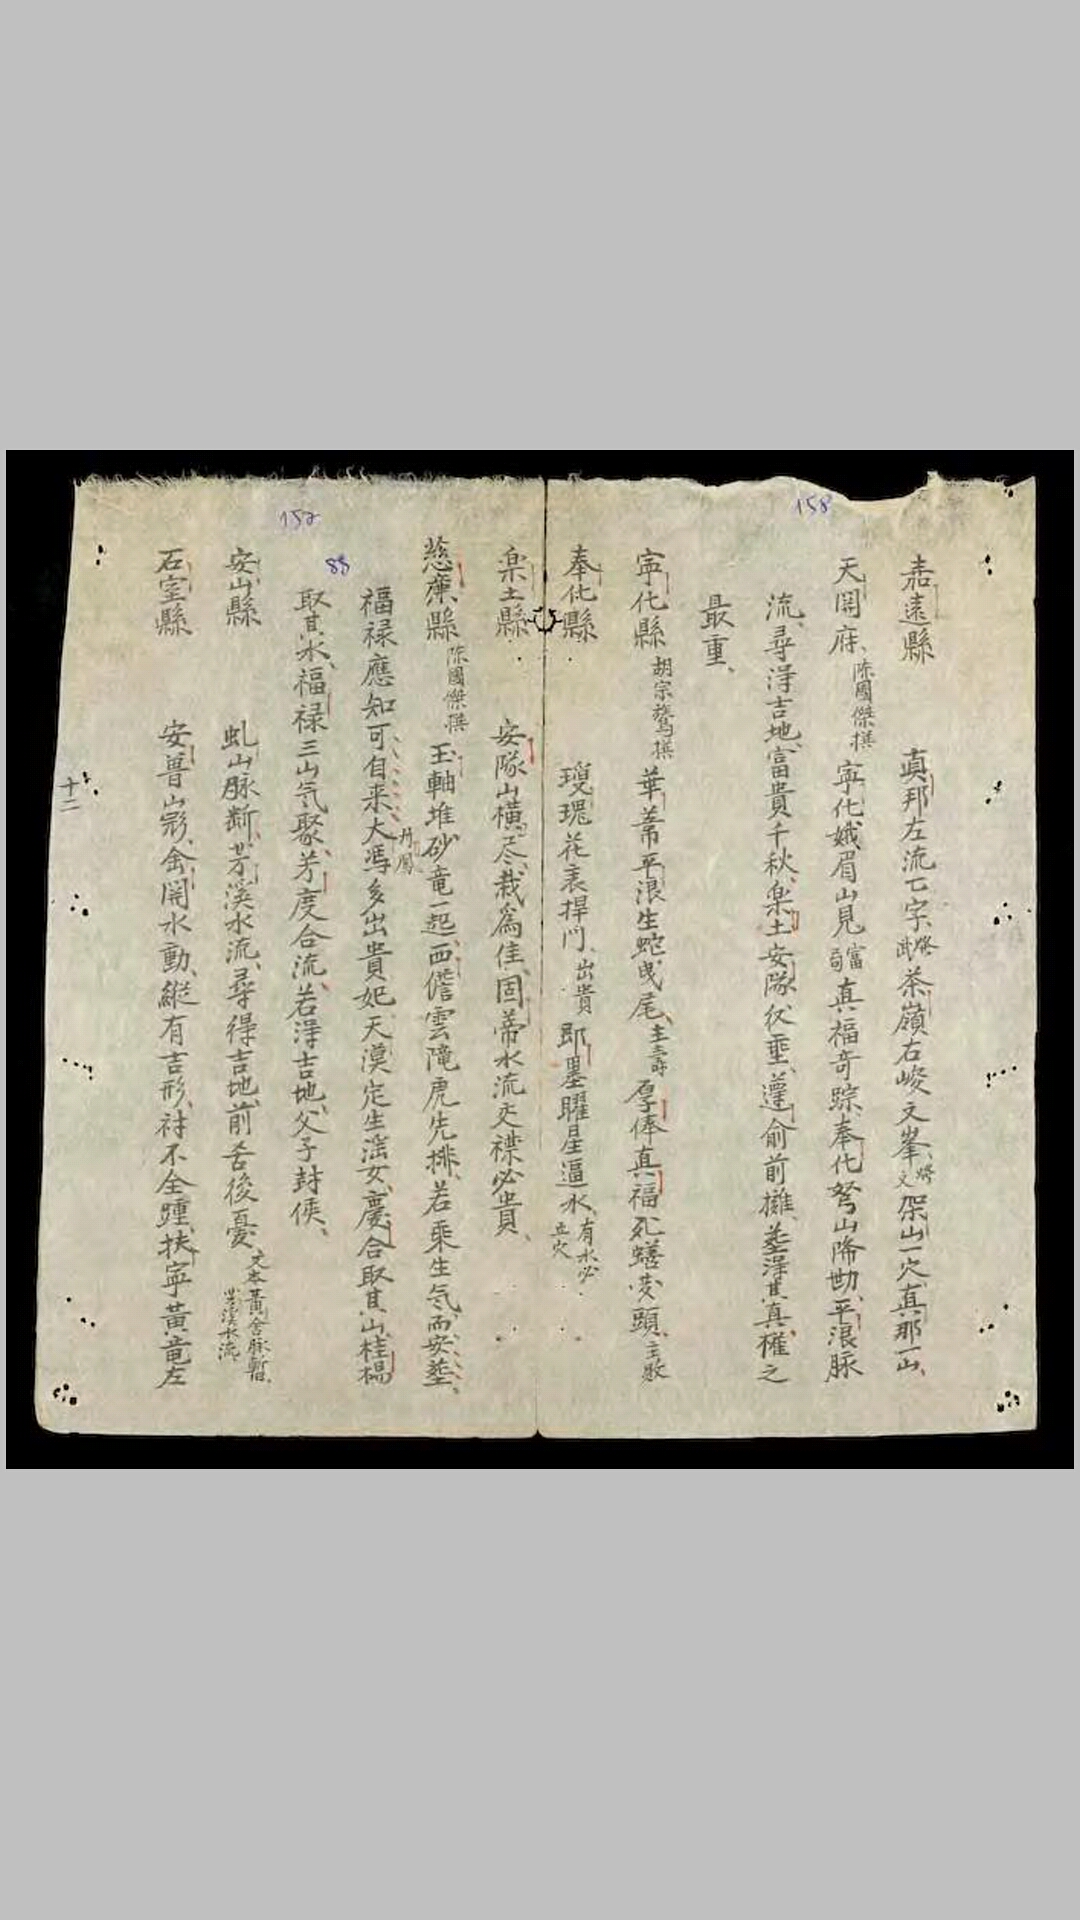 158
嘉遠縣 真邦左流亡字、發武 茶嶺右峻文峯、發文 架山一穴真那一山、
天罔府、陈國傑撰 寜化娥眉山見 富局 真福竒踪、奉化弩山降勘、平浪脉
流、尋淂吉地、富貴千秋、楽土安隊伏垂、蘧俞前擁、塟淂其真、權之
最重、
寜化縣 胡宗鷟撰 華葶平浪生蛇曳尾、主壽 厚俸真福死蟮 頭、主敗
奉化縣 瓊瑰花表捍门、出貴 即墨曜星逼水、有水必立穴
楽土縣 安隊山横尽、栽為佳、固蒂水流交襟必貴、
慈廉縣 陈國傑撰 玉軸堆砂竜一起、西儋雲陵虎先排、若乘生気而安塟、
福禄應知可、自来、大馮 丹鳳 多出貴妃、天漠定生滛女、慶合取其山、桂楊
取其水、福禄三山気聚、芳度合流、若淂吉地、父子封侯、
157
88
安山縣 虬山脉断、芳溪水流、尋得吉地、前舌後憂、文本黄舍脉暫、 溪水流
石室縣 安普山彩、金開水動、縦有吉形、衬不全踵、扶寜黄竜左
十二